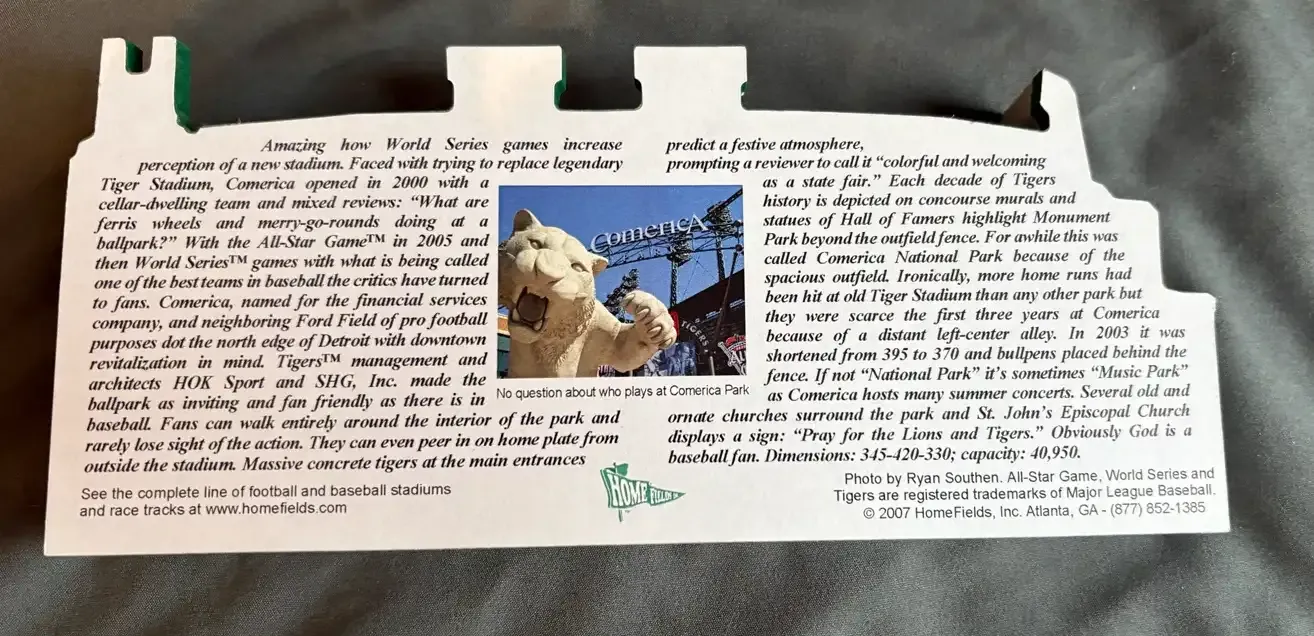 Amazing how World Series games increase
perception of a new stadium. Faced with trying to replace legendary
Tiger Stadium, Comerica opened in 2000 with a
cellar-dwelling team and mixed reviews: “What are
ferris wheels and merry-go-rounds doing at a
ballpark?” With the All-Star Game™ in 2005 and
then World Series™ games with what is being called
one of the best teams in baseball the critics have turned
to fans. Comerica, named for the financial services
company, and neighboring Ford Field of pro football
purposes dot the north edge of Detroit with downtown
revitalization in mind. Tigers™ management and
architects HOK Sport and SHG, Inc. made the
ballpark as inviting and fan friendly as there is in
baseball. Fans can walk entirely around the interior of the park and
rarely lose sight of the action. They can even peer in on home plate from
outside the stadium. Massive concrete tigers at the main entrances
predict a festive atmosphere,
prompting a reviewer to call it “colorful and welcoming
as a state fair.” Each decade of Tigers
history is depicted on concourse murals and
statues of Hall of Famers highlight Monument
Park beyond the outfield fence. For awhile this was
called Comerica National Park because of the
spacious outfield. Ironically, more home runs had
been hit at old Tiger Stadium than any other park but
they were scarce the first three years at Comerica
because of a distant left-center alley. In 2003 it was
shortened from 395 to 370 and bullpens placed behind the
fence. If not “National Park” it’s sometimes “Music Park”
as Comerica hosts many summer concerts. Several old and
ornate churches surround the park and St. John’s Episcopal Church
displays a sign: “Pray for the Lions and Tigers.” Obviously God is a
baseball fan. Dimensions: 345-420-330; capacity: 40,950.
ComericA
TIGERS
No question about who plays at Comerica Park
See the complete line of football and baseball stadiums
and race tracks at www.homefields.com
HOME FIELDS
Photo by Ryan Southen. All-Star Game, World Series and
Tigers are registered trademarks of Major League Baseball.
© 2007 HomeFields, Inc. Atlanta, GA - (877) 852-1385